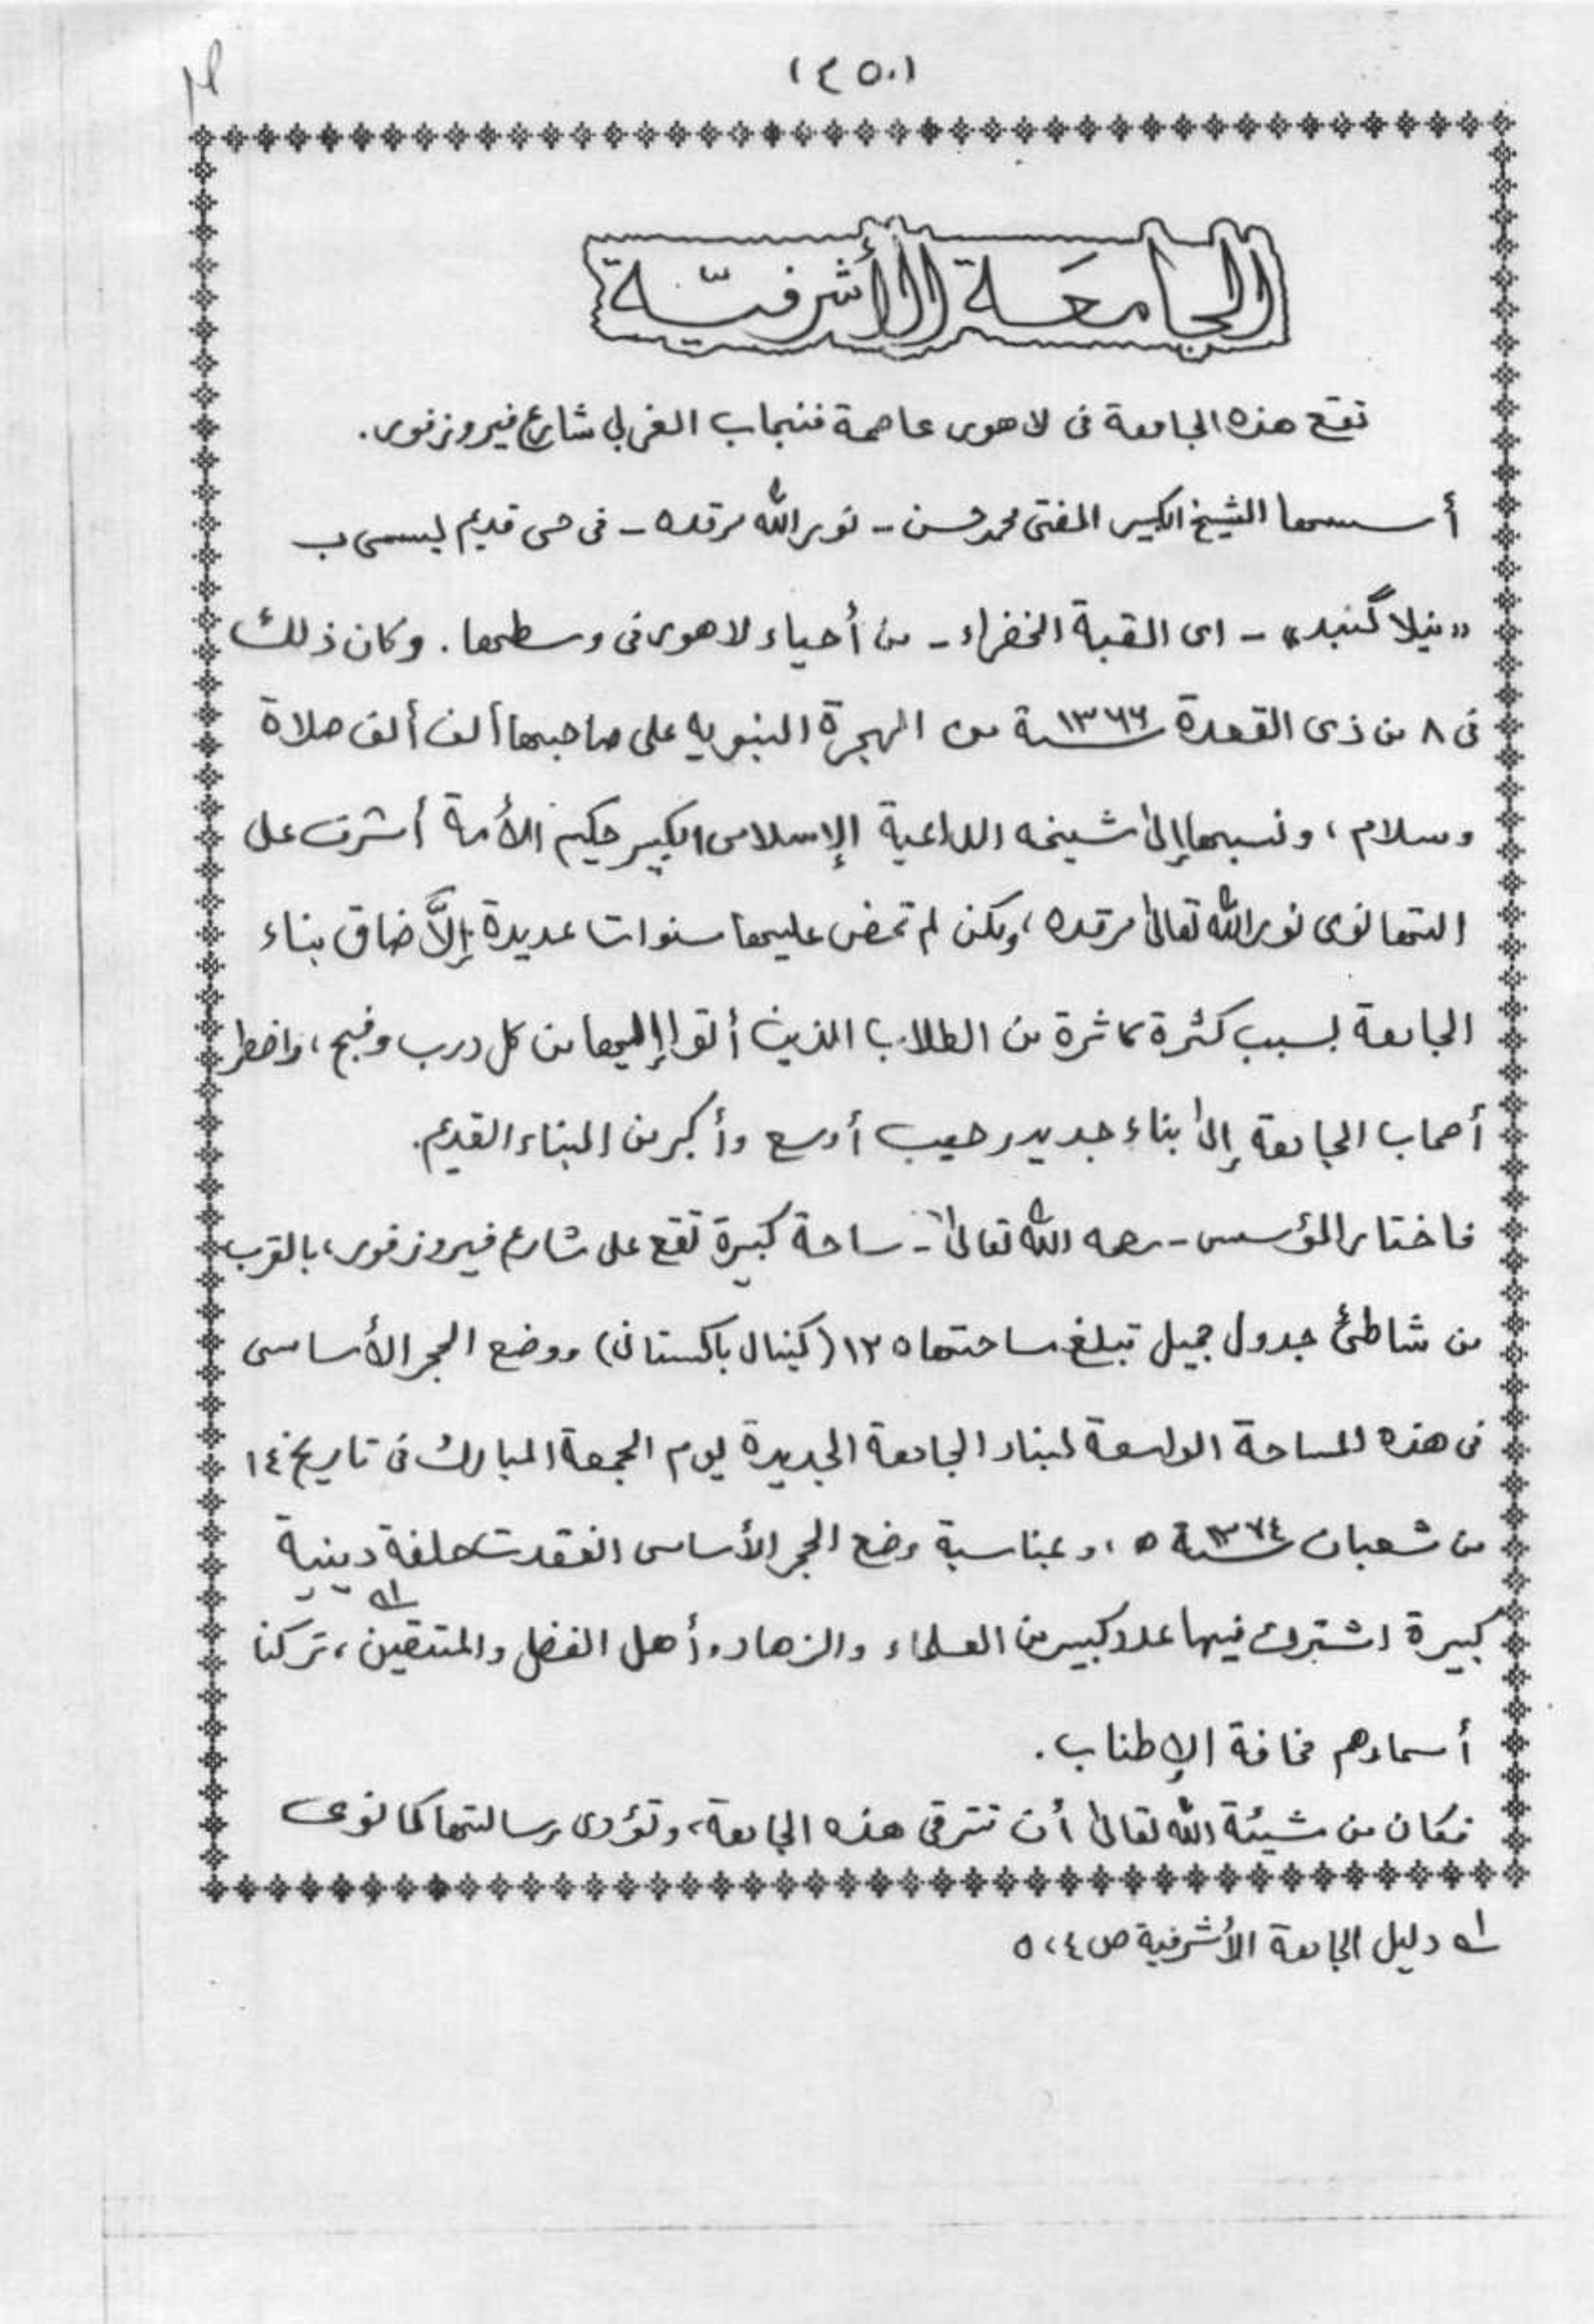 (٤٥٠)
الجامعة الأشرفيّة
تقع هذه الجامعة فى لاهور عاصمة فنجاب الغربى شارع فيروزفور.
أسسها الشيخ الكبير المفتى محمد حسن - نور الله مرقده - فى حى قديم يسمى ب
«نيلا گنبد» - اى القبة الخضراء - من أحياء لاهور فى وسطها. وكان ذلك
فى ٨ من ذى القعدة سنة ١٣٦٦ من الهجرة النبويه على صاحبها ألف ألف صلاة
وسلام، ونسبها إلى شيخه الداعية الإسلامى الكبير حكيم الأمة أشرف على
التهانوى نور الله تعالى مرقده، ولكن لم تمض عليها سنوات عديدة إلاَّ ضاق بناء
الجامعة بسبب كثرة كاثرة من الطلاب الذين أتوا إليها من كل درب وفج، واضطر
أصحاب الجامعة إلى بناء جديد رحيب أوسع وأكبر من البناء القديم.
فاختار المؤسس - رحمه الله تعالى - ساحة كبيرة تقع على شارع فيروزفور، بالقرب
من شاطئ جدول جميل تبلغ مساحتها ١٢٥ (كينال باكستانى) ووضع الحجر الأساسى
فى هذه المساحة الواسعة لبناء الجامعة الجديدة يوم الجمعة المبارك فى تاريخ ١٤
من شعبان سنة ١٣٧٤ ه، وبمناسبة وضع الحجر الأساسى انعقدت حفلة دينية
كبيرة اشترك فيها عدد كبير من العلماء والزهاد وأهل الفضل والمتقين، تركنا
أسماءهم مخافة الإطناب.
فكان من شيئة الله تعالى أن تترقى هذه الجامعة، وتؤدى رسالتها كما نوى
١ه دليل الجامعة الأشرفية ص ٤، ٥